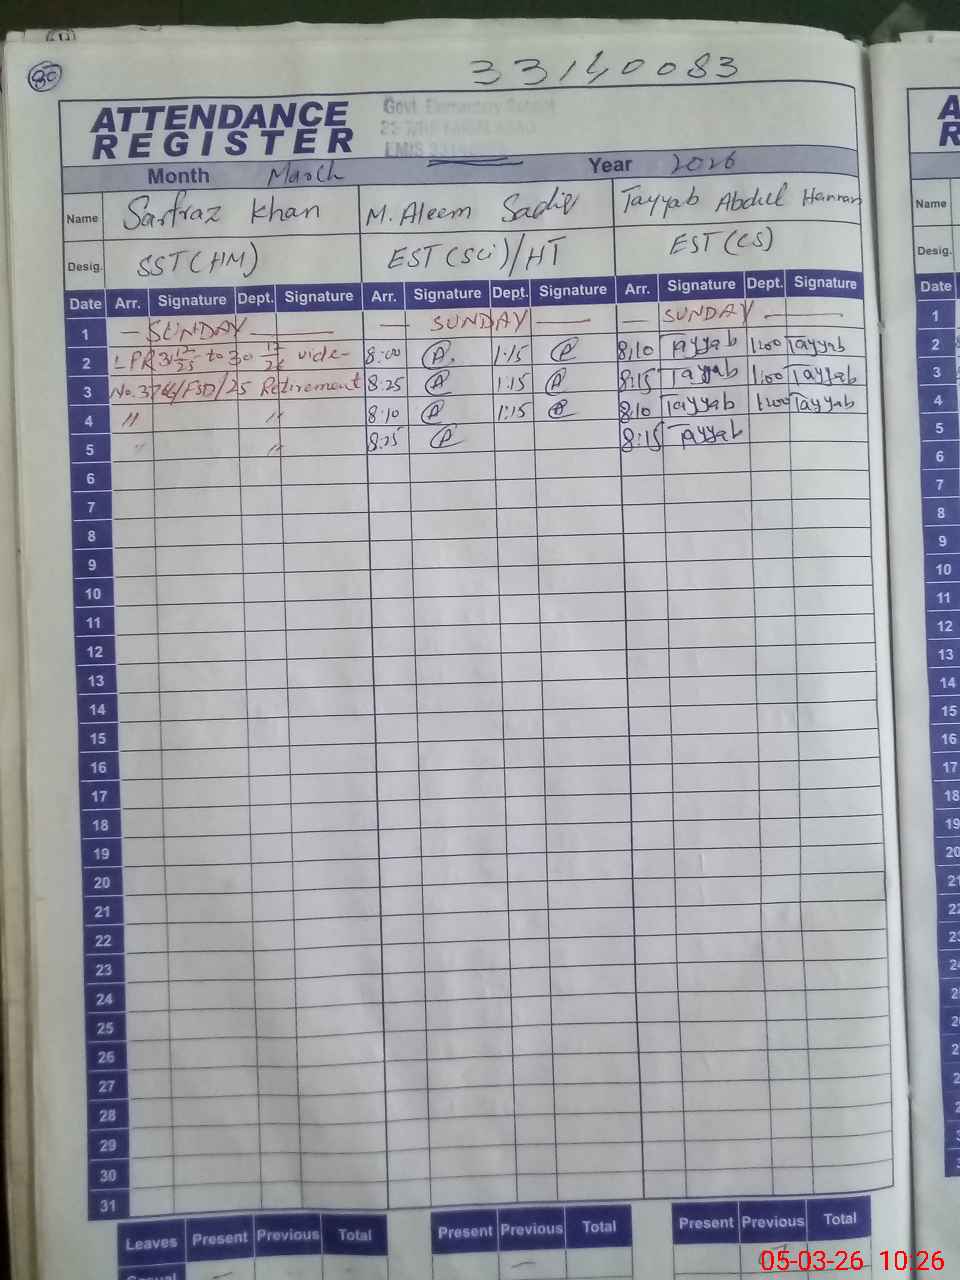 80
33140083
ATTENDANCE
REGISTER
Govt. Elementary School
EMIS
Month March Year 2026
Name Sarfraz Khan M. Aleem Sadiq Tayyab Abdul Hannan
Desig. SST (HM) EST (Sci)/HT EST (CS)
Date Arr. Signature Dept. Signature Arr. Signature Dept. Signature Arr. Signature Dept. Signature
1 — SUNDAY — — SUNDAY — — SUNDAY —
2 LPR 31 12/25 to 30 12/26 vide- 8:00 1:15 8:10 Tayyab 1:00 Tayyab
3 /FSD/25 Retirement 8:25 1:15 8:15 Tayyab 1:00 Tayyab
4 " " 8:10 1:15 8:10 Tayyab 1:00 Tayyab
5 " " 8:25 8:15 Tayyab
6
7
8
9
10
11
12
13
14
15
16
17
18
19
20
21
22
23
24
25
26
27
28
29
30
31
Leaves Present Previous Total Present Previous Total Present Previous Total
Casual
A
R
Name
Desig.
Date
1
2
3
4
5
6
7
8
9
10
11
12
13
14
15
16
17
18
19
20
05-03-26 10:26